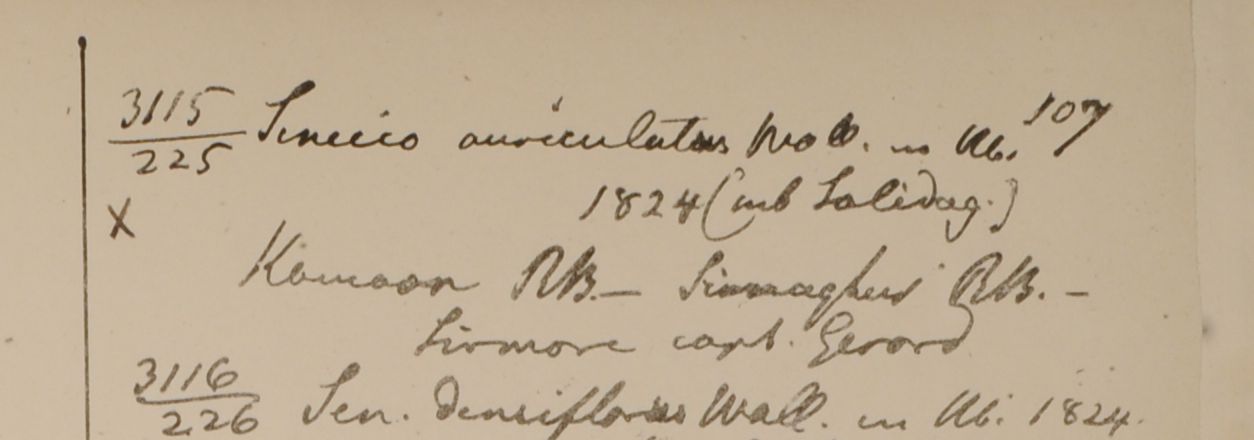 107
3115 Senecio auriculatus Wall. in Hb.
225 1824 (sub Solidag.)
X
Kamaon RB. — Sirinaghur RB. —
Sirmore capt. Gerard
3116 Sen. densiflorus Wall. in Hb. 1824.
226